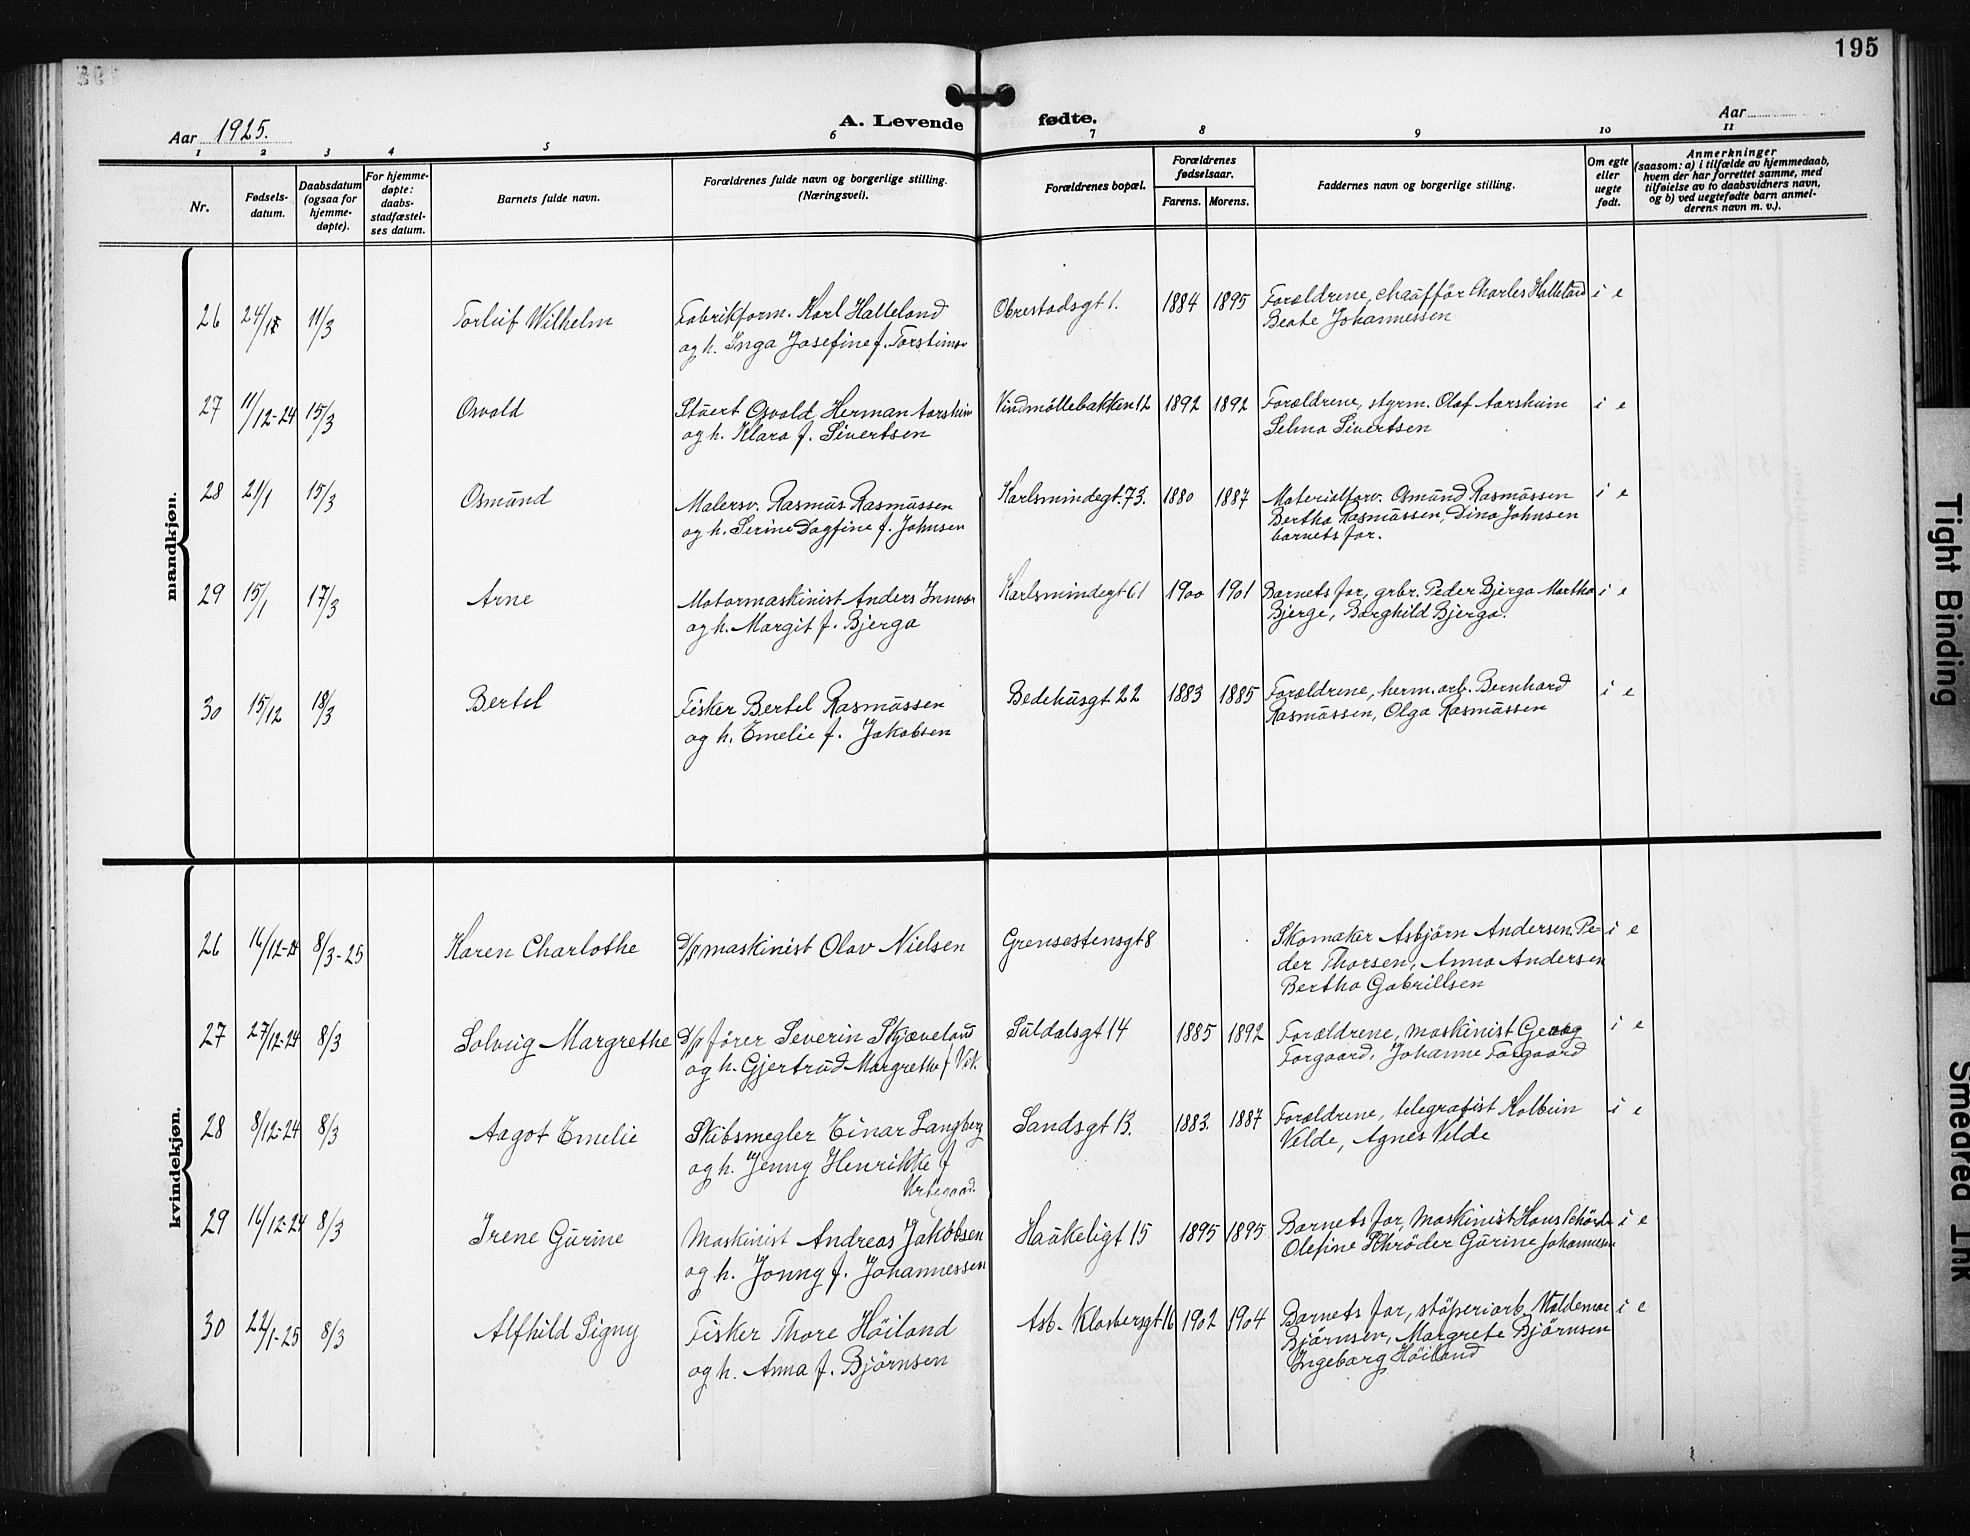 195
Aar 1925.
A. Levende fødte.
Aar
1 2 3 4 5 6 7 8 9 10 11
Nr.
Fødsels-
datum.
Daabsdatum
(ogsaa for
hjemme-
døpte).
For hjemme-
døpte:
daabs-
stadfæstel-
ses datum.
Barnets fulde navn.
Forældrenes fulde navn og borgerlige stilling.
(Næringsvei).
Forældrenes bopæl.
Forældrenes
fødselsaar.
Farens. Morens.
Faddernes navn og borgerlige stilling.
Om egte
eller
uegte
født.
Anmerkninger
(saasom: a) i tilfælde av hjemmedaab,
hvem der har forrettet samme, med
tilføielse av to daabsvidners navn,
og b) ved uegtefødte barn anmel-
derens navn m. v.).
mandkjøn.
26 24/ 11/3 Torleif Wilhelm Fabrikform. Karl Halleland Obrestadsgt 1. 1884 1895 Forældrene, chauffør Charles Halleland i e
og h. Inga Josefine f. Beate Johannessen
27 11/12-24 15/3 Osvald Stuert Osvald Herman Aarsheim Vindmøllebakken 12 1892 1892 Forældrene, styrm. Olaf Aarsheim i e
og h. Klara f. Sivertsen Selma Sivertsen
28 21/1 15/3 Osmund Malersv. Rasmus Rasmussen Karlsmindegt. 73. 1880 1887 Materialforv. Osmund Rasmussen i e
og h. Serine Dagfine f. Johnsen Bertha Rasmussen, Dina Johnsen
barnets far.
29 15/1 17/3 Arne Motormaskinist Anders Karlsmindegt 61 1900 1901 Barnets far, grbr. Peder Bjerga Martha i e
og h. Margit f. Bjerga Bjerge, Borghild Bjerga.
30 15/12 18/3 Bertel Fisker Bertel Rasmussen Bedehusgt 22 1883 1885 Forældrene, herm. arb. Bernhard i e
og h. Emelie f. Jakobsen Rasmussen, Olga Rasmussen
kvindekjøn.
26 16/12-24 8/3-25 Karen Charlothe D/s maskinist Olav Nielsen Grensestensgt 8 Skomaker Asbjörn Andersen. Pe- i e
der Thorsen, Anna Andersen
Bertha Gabrillsen
27 27/12-24 8/3 Solveig Margrethe D/s fører Severin Skjæveland Suldalsgt 14 1885 1892 Forældrene, maskinist Georg i e
og h. Gjertrud Margrethe f Vik. Torgaard, Johanne Torgaard
28 8/12-24 8/3 Aagot Emelie Skibsmegler Einar Langberg Sandsgt 13. 1883. 1887 Forældrene, telegrafist Kolbein i e
og h. Jenny Henrikke f Velde, Agnes Velde
29 16/12-24 8/3 Irene Gurine Maskinist Andreas Jakobsen Haukeligt 15 1895 1895 Barnets far, Maskinist Hans Schröder i e
og h. Jonny f. Johannessen Olefine Schröder Gurine Johannesen
30 22/1-25 8/3 Alfhild Signy Fisker Thore Höiland Asb. Klostersgt 16 1902 1904 Barnets far, stöperiarb. Valdemar i e
og h. Anna f. Björnsen Björnsen, Margrete Björnsen
Ingeborg Höiland
Tight Binding
Smeared Ink